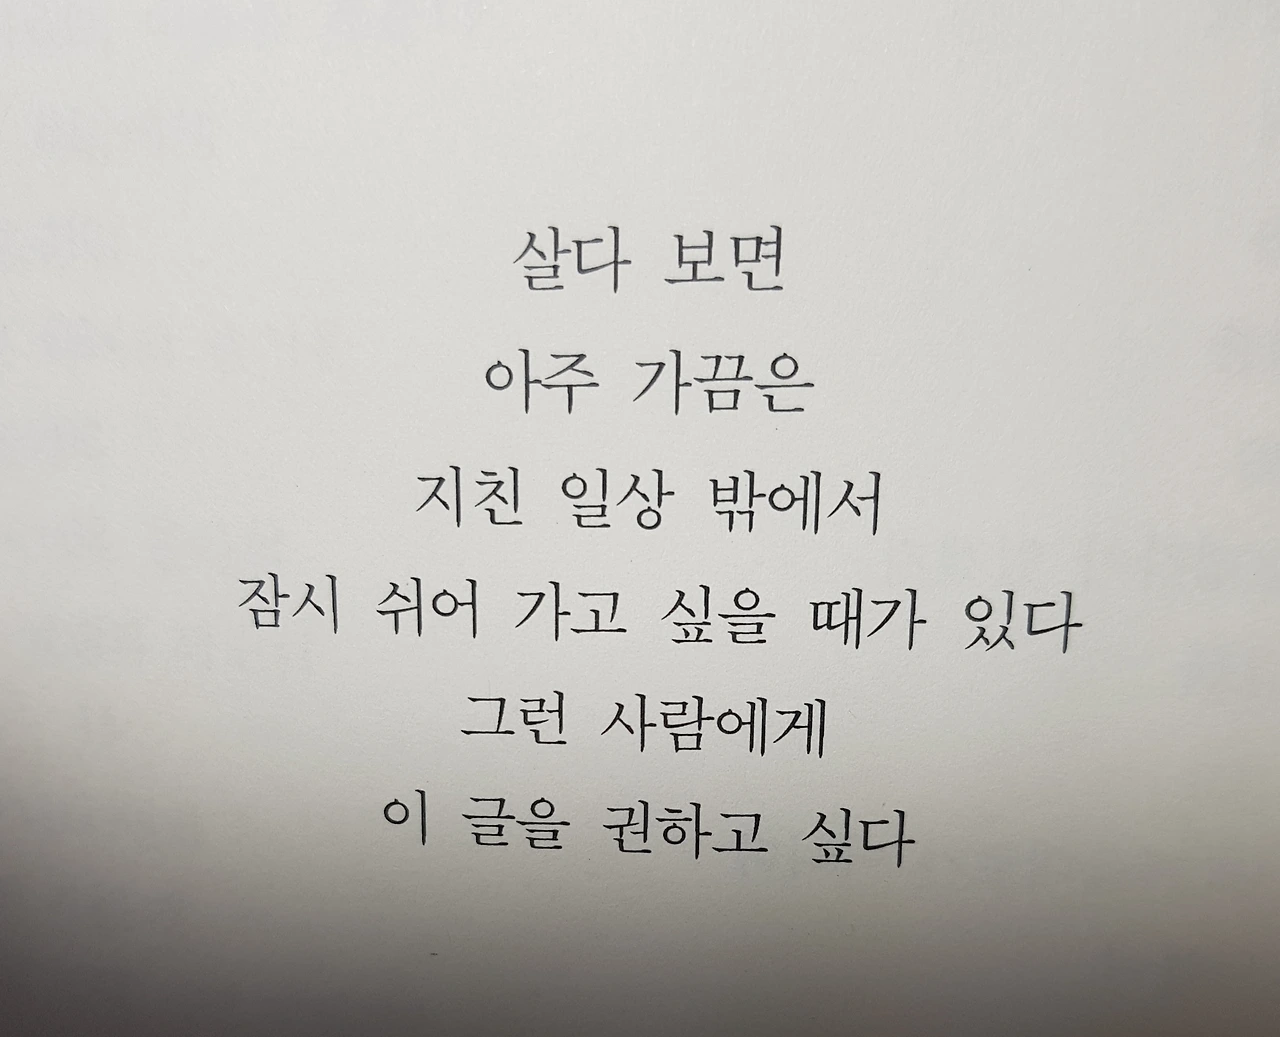 살다 보면
아주 가끔은
지친 일상 밖에서
잠시 쉬어 가고 싶을 때가 있다
그런 사람에게
이 글을 권하고 싶다